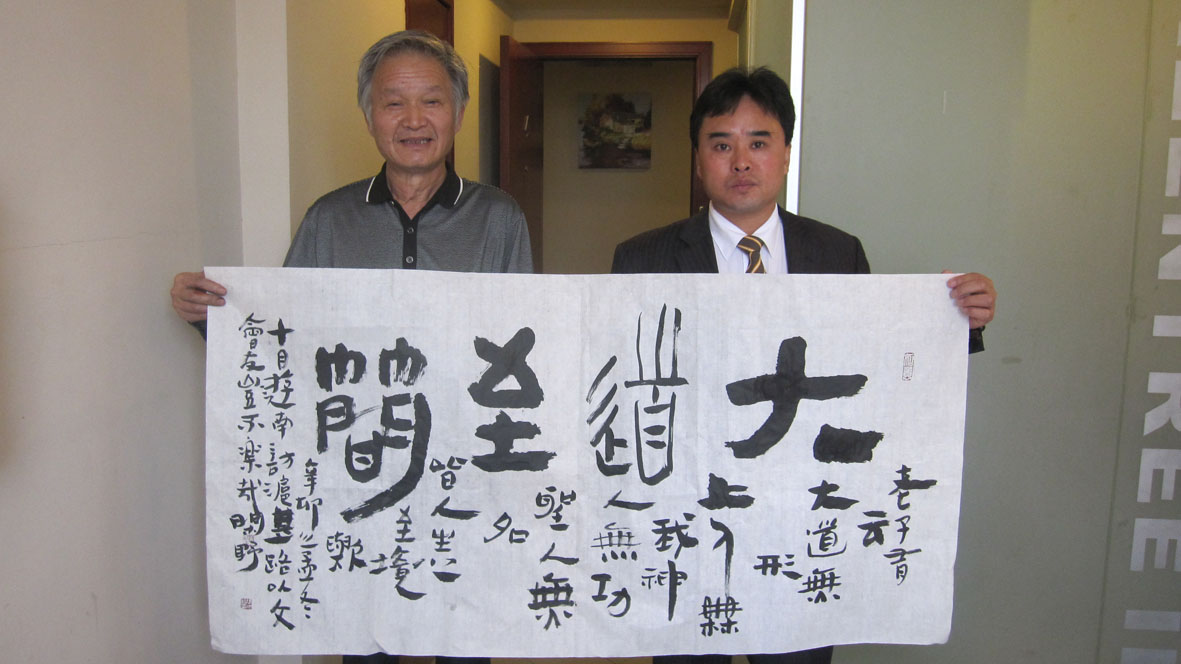 大道至簡
老子有
云
大道無
形
上人無
我神
人無功
聖人無
名
皆人生之
至境
歟
辛卯之孟冬
十月遊南訪滬路以文
會友豈不樂哉
ENTREE IN